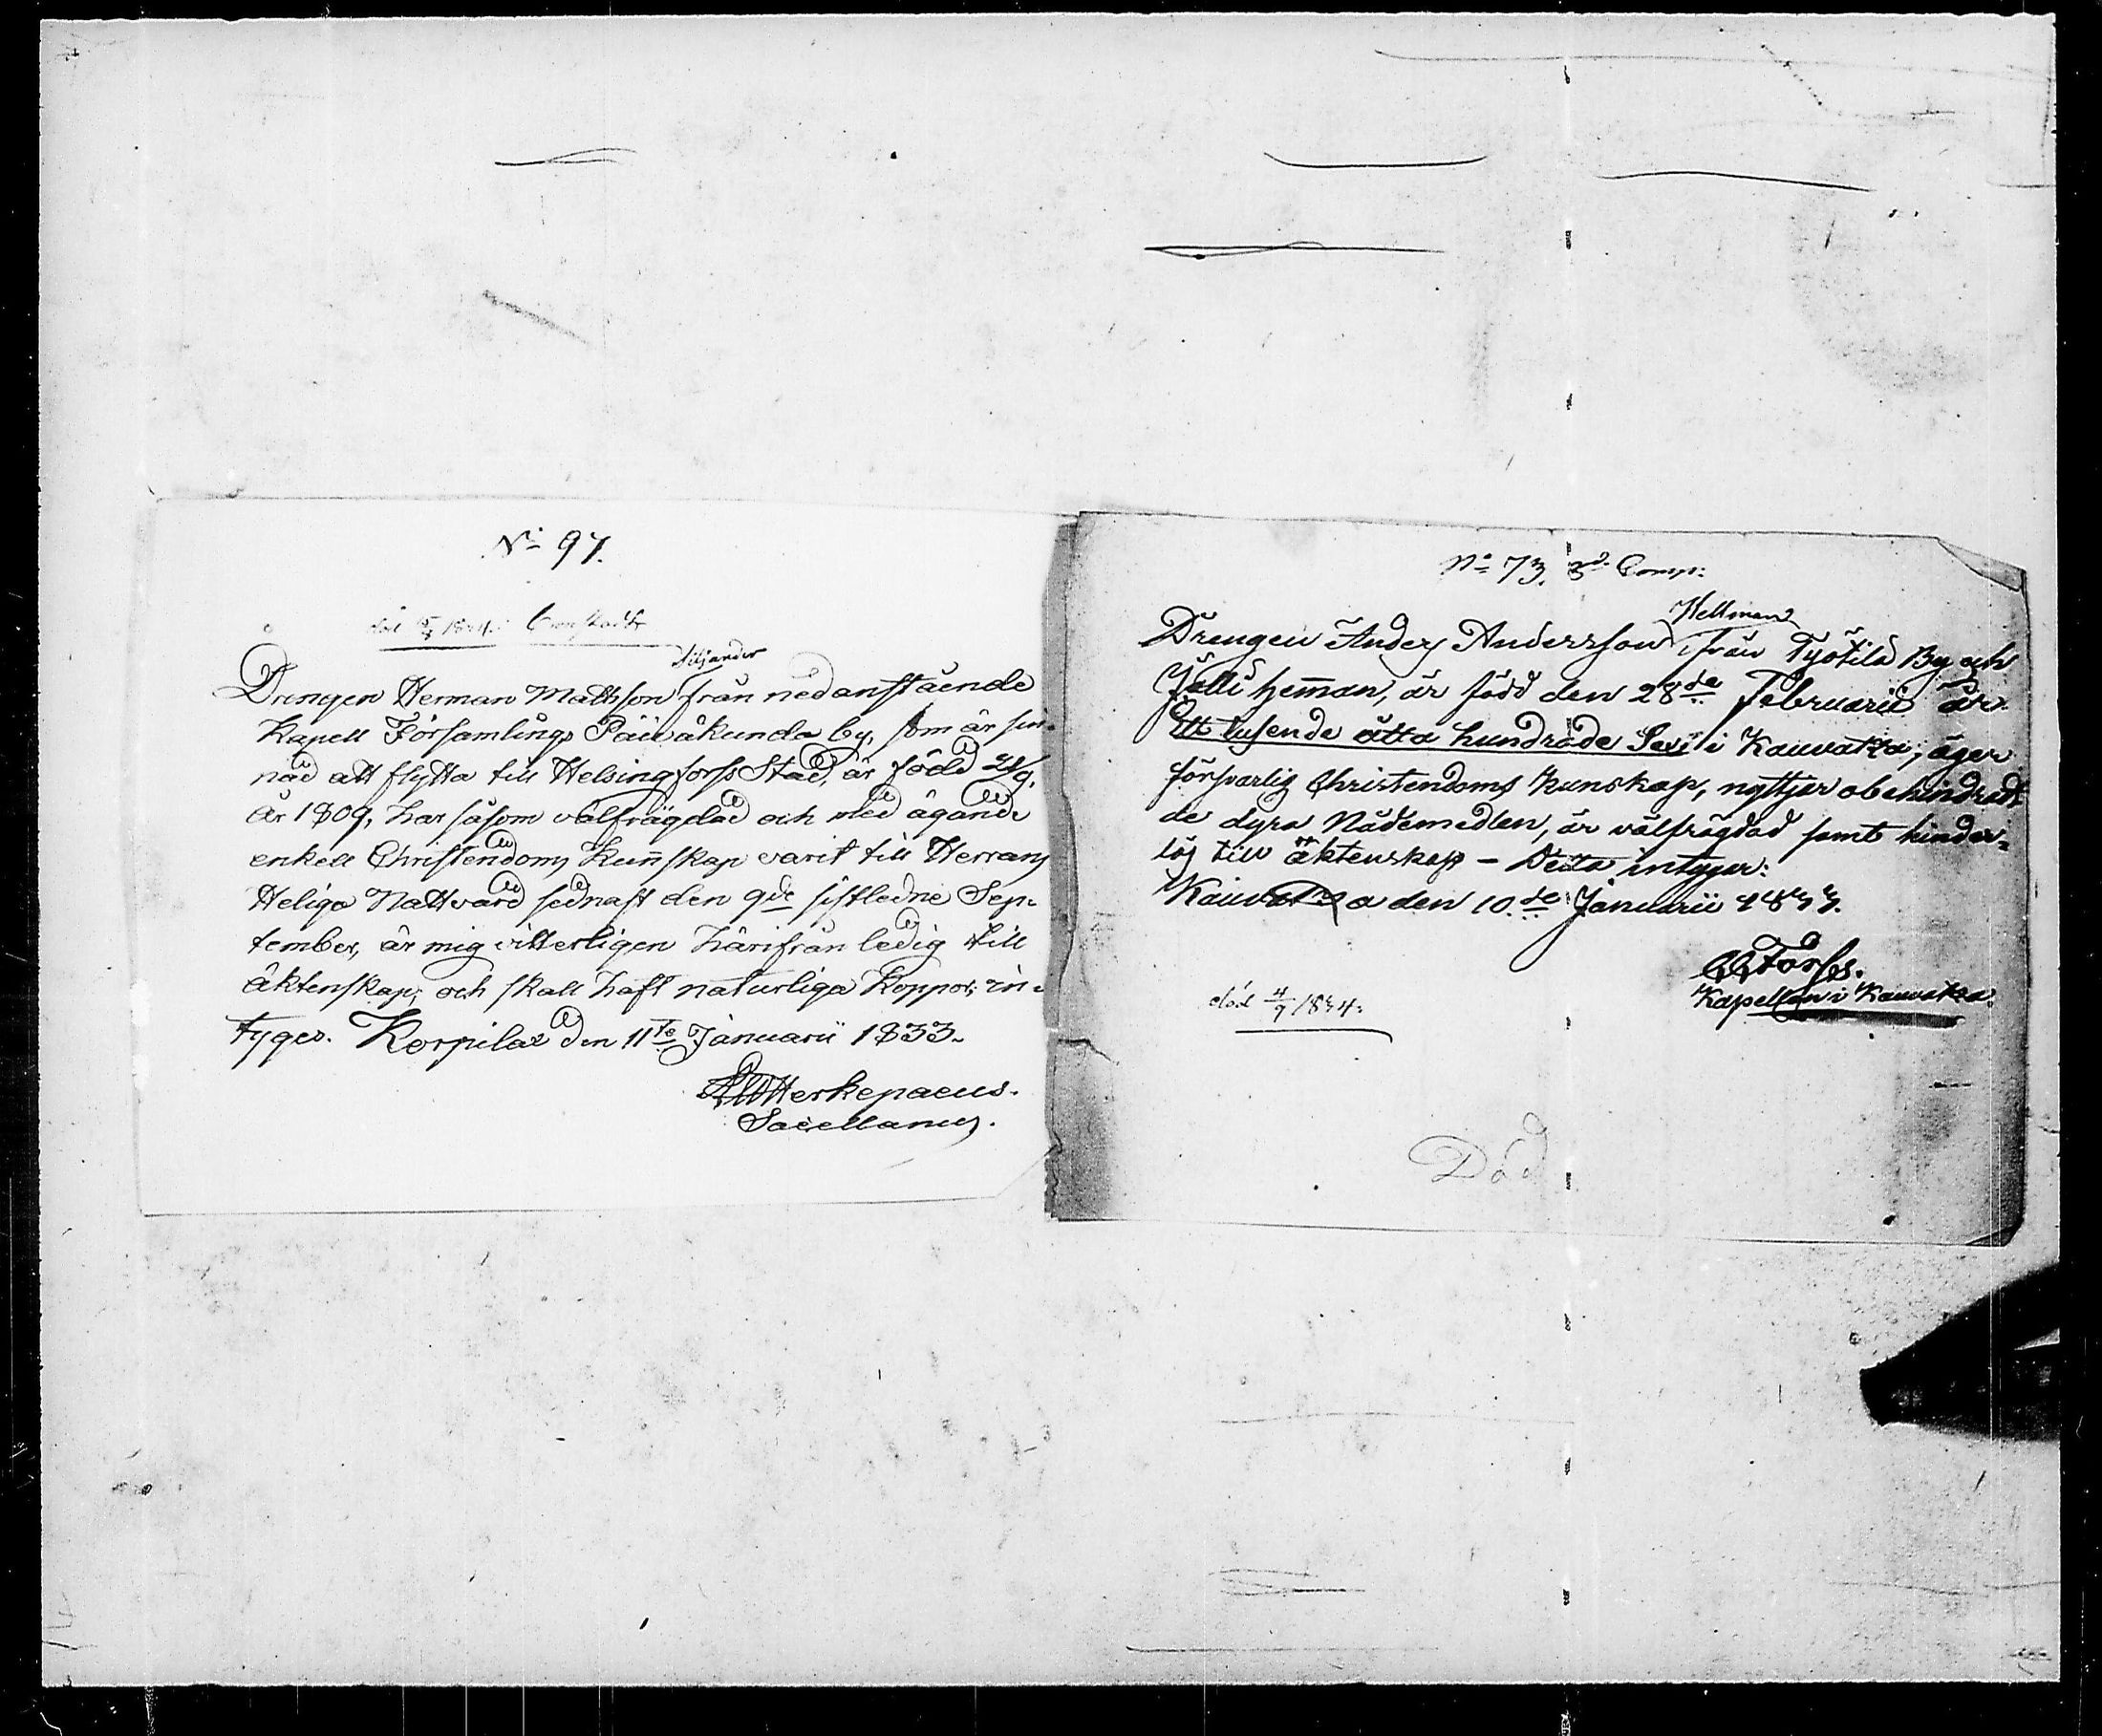 No 97.
död 1834. Cronstadt
Siljander
Drengen Herman Mattsson från nedanstående
Kapell Församlings Päiväkunda by, som är sin-
nad att flytta till Helsingforss Stad, är född 21/9.
år 1809, har såsom välfrägdad och med ägande
enkell Christendoms Kunskap varit till Herrans
Heliga Nattvard sednast den 9de sistledne Sep-
tember, är mig vitterligen härifrån ledig till
äktenskap, och skall haft naturliga Koppor, in-
tyges. Korpilax den 11te Januarii 1833.
Herkepaeus.
Sacellanus.
No 73. 3d. Comp:
Hellman
Drengen Anders Andersson från Työtilä By och
Jälli heman, är född den 28de Februarii år
Ett tusende åtta hundrade Sex i Kauvatsa; äger
försvarlig Christendoms kunskap, nyttjar obehindradt
de dyra Nådemedlen, är välfrägdad samt hinder-
lös till äktenskap - Detta intygar:
Kauvatsa den 10de Januarii 1833.
Forss.
Kapellan i Kauvatsa.
död 4/9 1834.
Död